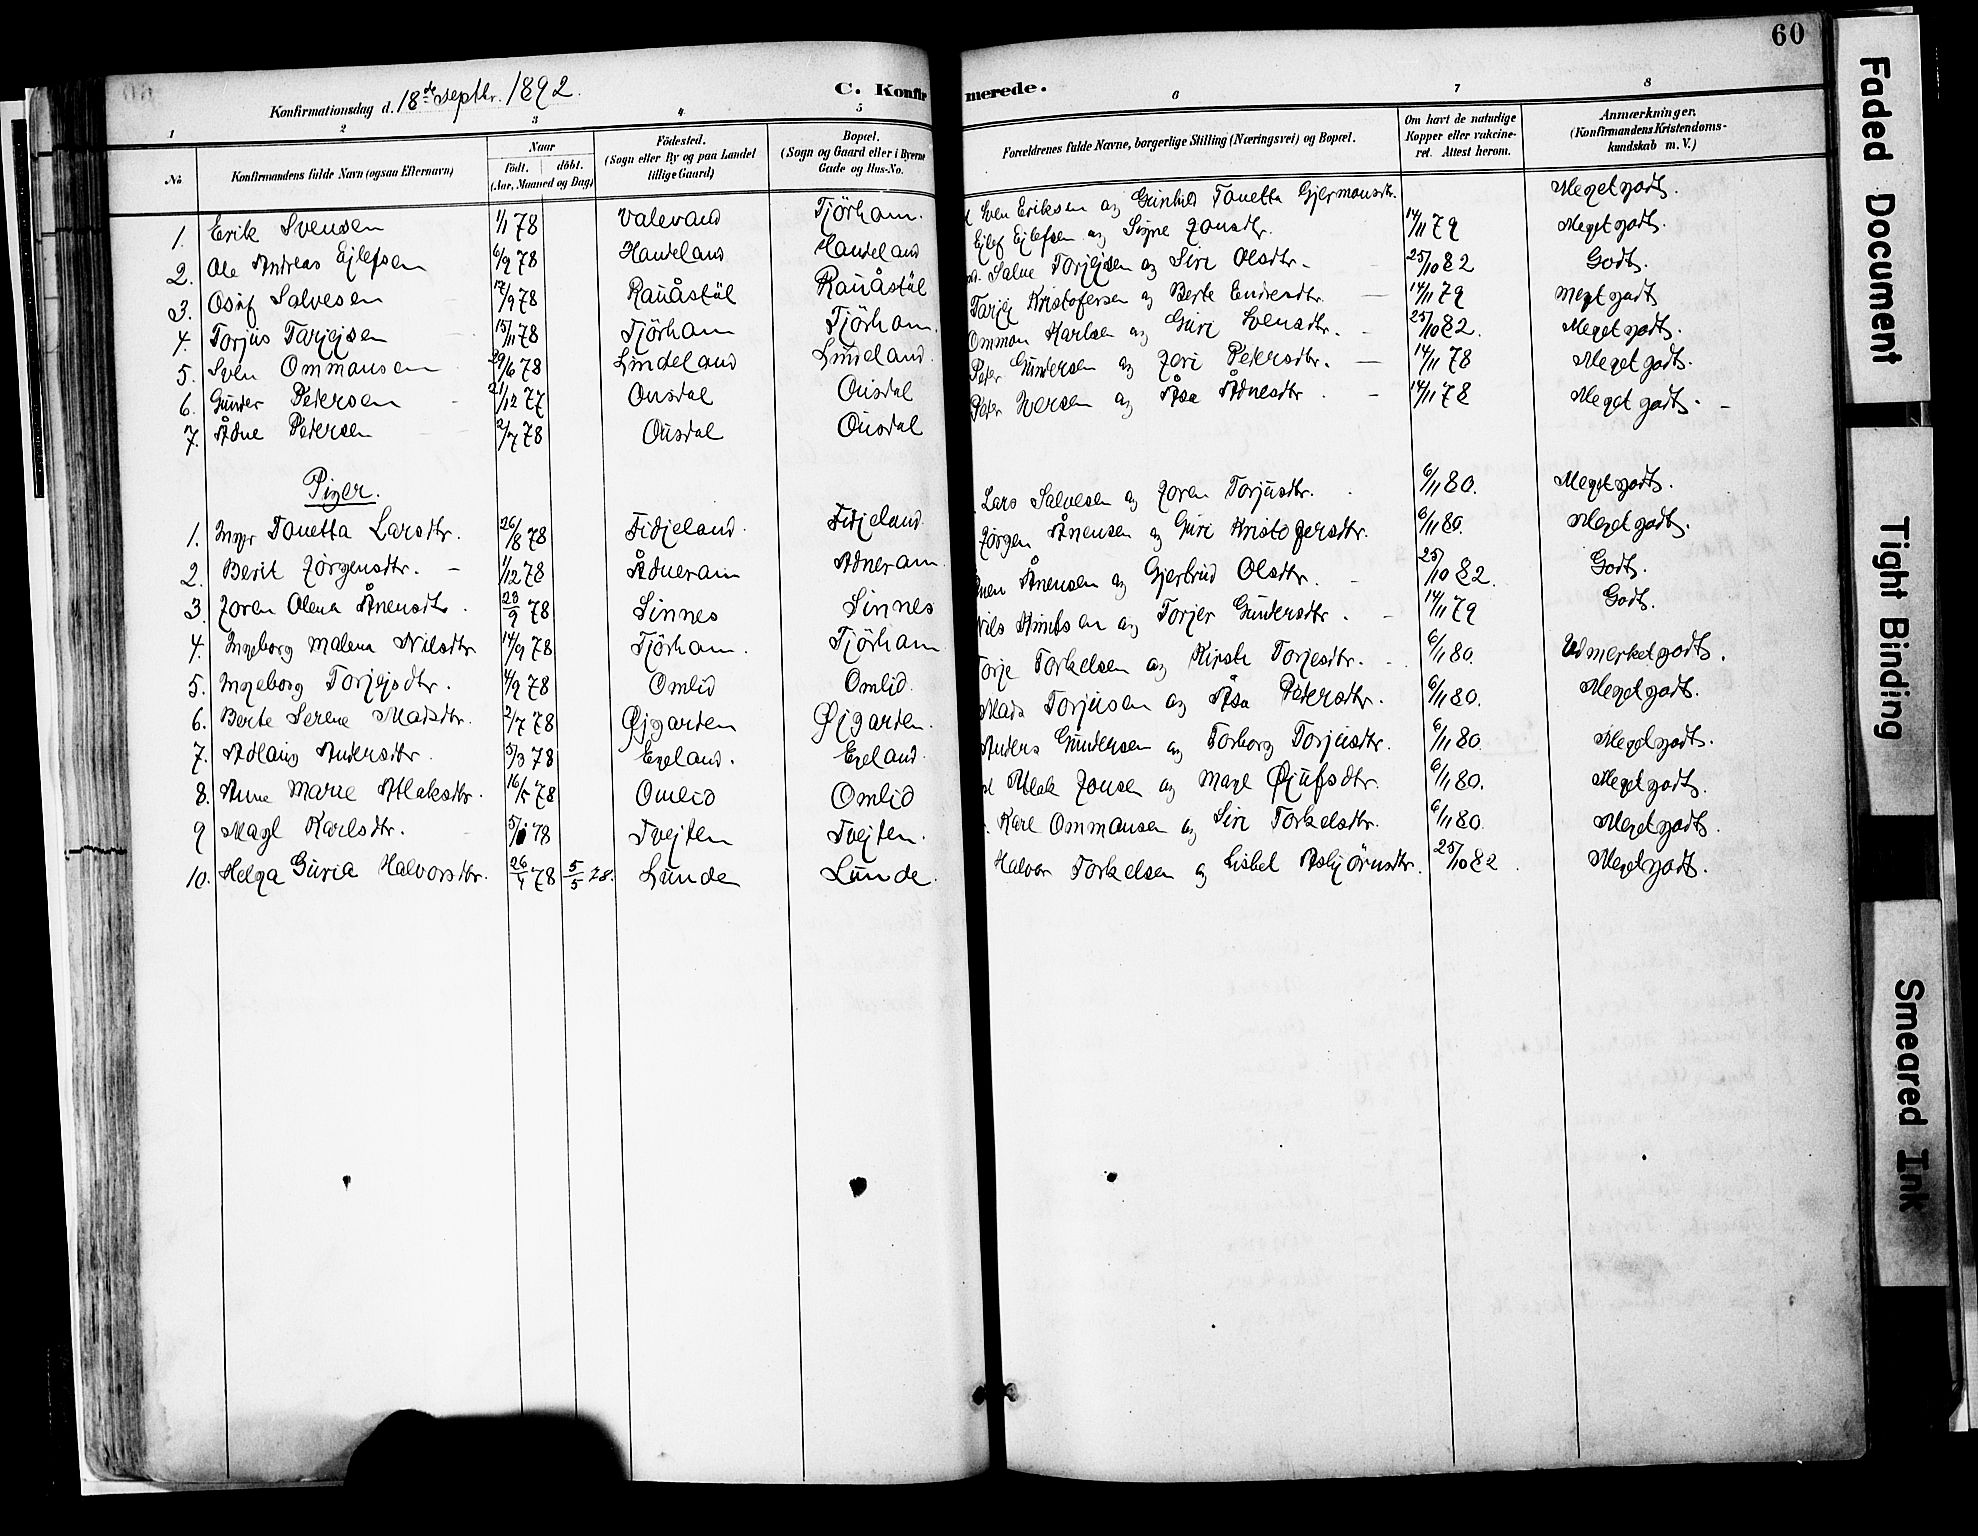 60
Konfirmationsdag d. 18de Septbr. 1892.
C. Konfirmerede.
1 2 3 4 5 6 7 8
No Konfirmandens fulde Navn (ogsaa Efternavn) Naar født. døbt. (Aar, Maaned og Dag) Fødested. (Sogn eller By og paa Landet tillige Gaard) Bopæl. (Sogn og Gaard eller i Byerne Gade og Hus-No. Forældrenes fulde Navne, borgerlige Stilling (Næringsvei) og Bopæl. Om havt de naturlige Kopper eller vakcineret. Attest herom. Anmærkninger. (Konfirmandens Kristendomskundskab m. V.)
1. Erik Svensen 1/1 78 Valevand Tjörham. Sven Eriksen og Gunhild Tonetta Gjermonsdtr. Meget godt.
2. Ole Andreas Ejlefsen 6/9 78 Haudeland Haudeland Ejlef Ejlefsen og Signe Jonsdtr. 14/11 79 Meget godt.
3. Osuf Salvesen 17/9 78 Rauåstöl Rauåstöl Salve Torjejsen og Siri Olsdtr. 25/10 82 Godt.
4. Torjus Tarjejsen 15/11 78 Tjörham Tjörham. Tarjej Kristofersen og Berte Endresdtr. 14/11 79 Meget godt
5. Sven Ommonsen 29/6 78 Lindeland Lindeland. Ommon Karlsen og Guri Svensdtr. 25/10 82. Meget godt.
6. Gunder Petersen 21/12 77 Ousdal Ousdal Peter Gundersen og Jori Petersdtr. 14/11 78 Meget godt.
7. Ådne Petersen 2/7 78 Ousdal Ousdal Peter Iversen og Åsa Ådnesdtr. 14/11 78 Meget godt.
Piger.
1. Inger Tonetta Larsdtr. 26/8 78 Fidjeland. Fidjeland. Lars Salvesen og Joren Torjusdtr. 6/11 80. Meget godt.
2. Berit Jörgensdtr. 1/12 78 Ådneram Adneram Jörgen Ånensen og Guri Kristofersdtr. 6/11 80. Meget godt.
3. Joren Olena Ånensdtr. 23/9 78 Sinnes Sinnes Ånen Ånensen og Gjertrud Olsdtr. 25/10 82. Godt.
4. Ingeborg Malena Nilsdtr 14/9 78 Tjörham. Tjörham Nils og Torjer Gundersdtr. 14/11 79 Godt.
5. Ingeborg Torjejsdtr. 4/9 78 Omlid Omlid. Torje Torkelsen og Kirste Torjesdtr. 6/11 80. Udmerket godt.
6. Berte Serene Madsdtr. 2/7 78 Øjgarden Øjgarden. Mads Torjusen og Åsa Petersdtr. 6/11 80. Meget godt.
7. Adlaug Andersdtr. 5/3 78 Egeland. Egeland. Anders Gundersen og Torborg Torjusdtr. 6/11 80. Meget godt.
8. Anne Marie Atlaksdtr. 16/5 78 Omlid Omlid Atlak Jonsen og Magl Øjufsdtr. 6/11 80. Meget godt.
9 Magl Karlsdtr. 78 Tvejten Tvejten. Karl Ommonsen og Siri Torkelsdtr. 6/11 80. Meget godt.
10. Helga Guria Halvorsdtr. 26/4 78 5/5 28. Lunde Lunde. Halvor Torkelsen og Lisbet Asbjörnsdtr. 25/10 82. Meget godt.
Faded Document
Tight Binding
Smeared Ink